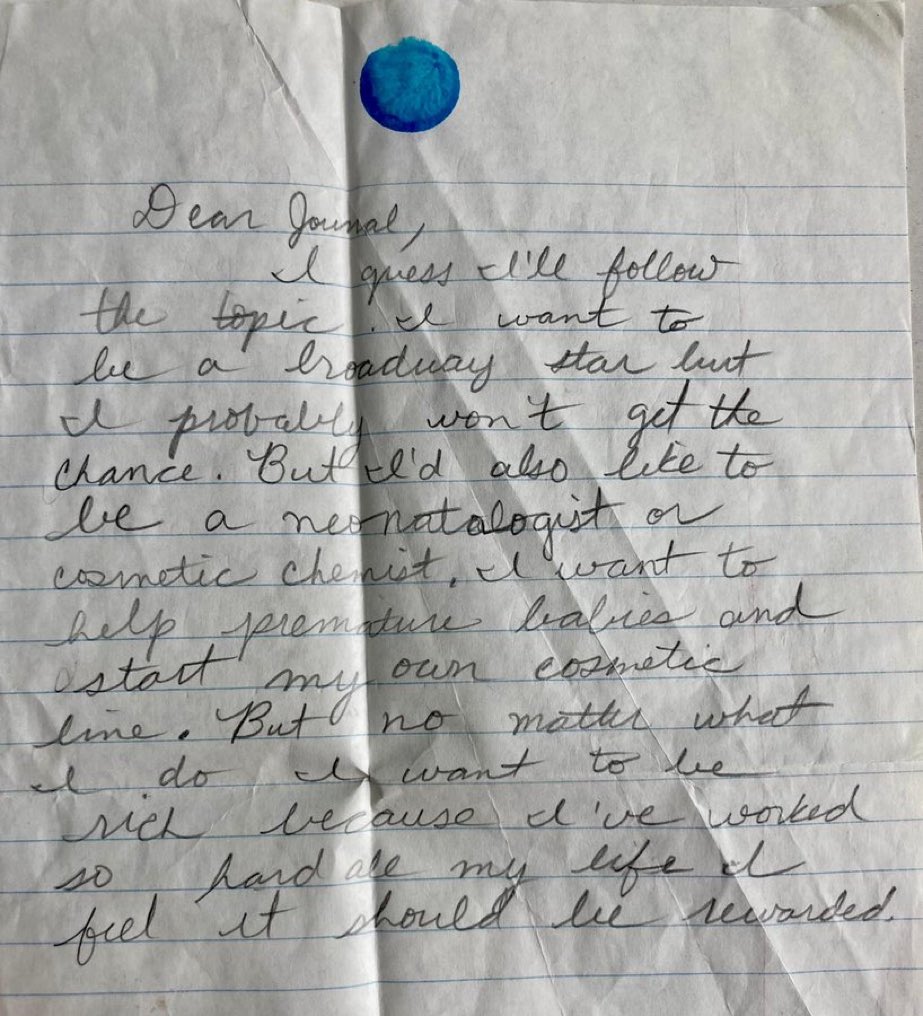 Dear Journal,
I guess I'll follow
the topic. I want to
be a broadway star but
I probably won't get the
chance. But I'd also like to
be a neonatalogist or
cosmetic chemist. I want to
help premature babies and
start my own cosmetic
line. But no matter what
I do I want to be
rich because I've worked
so hard all my life I
feel it should be rewarded.